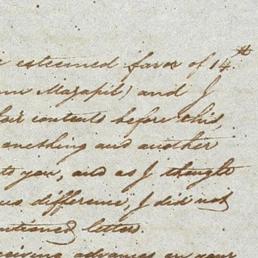 esteemed favor of 14th
Mazapil) and I
their contents before this,
anything and another
to you, and as I thought
difference, I did not
mentioned letter.
receiving advances on your